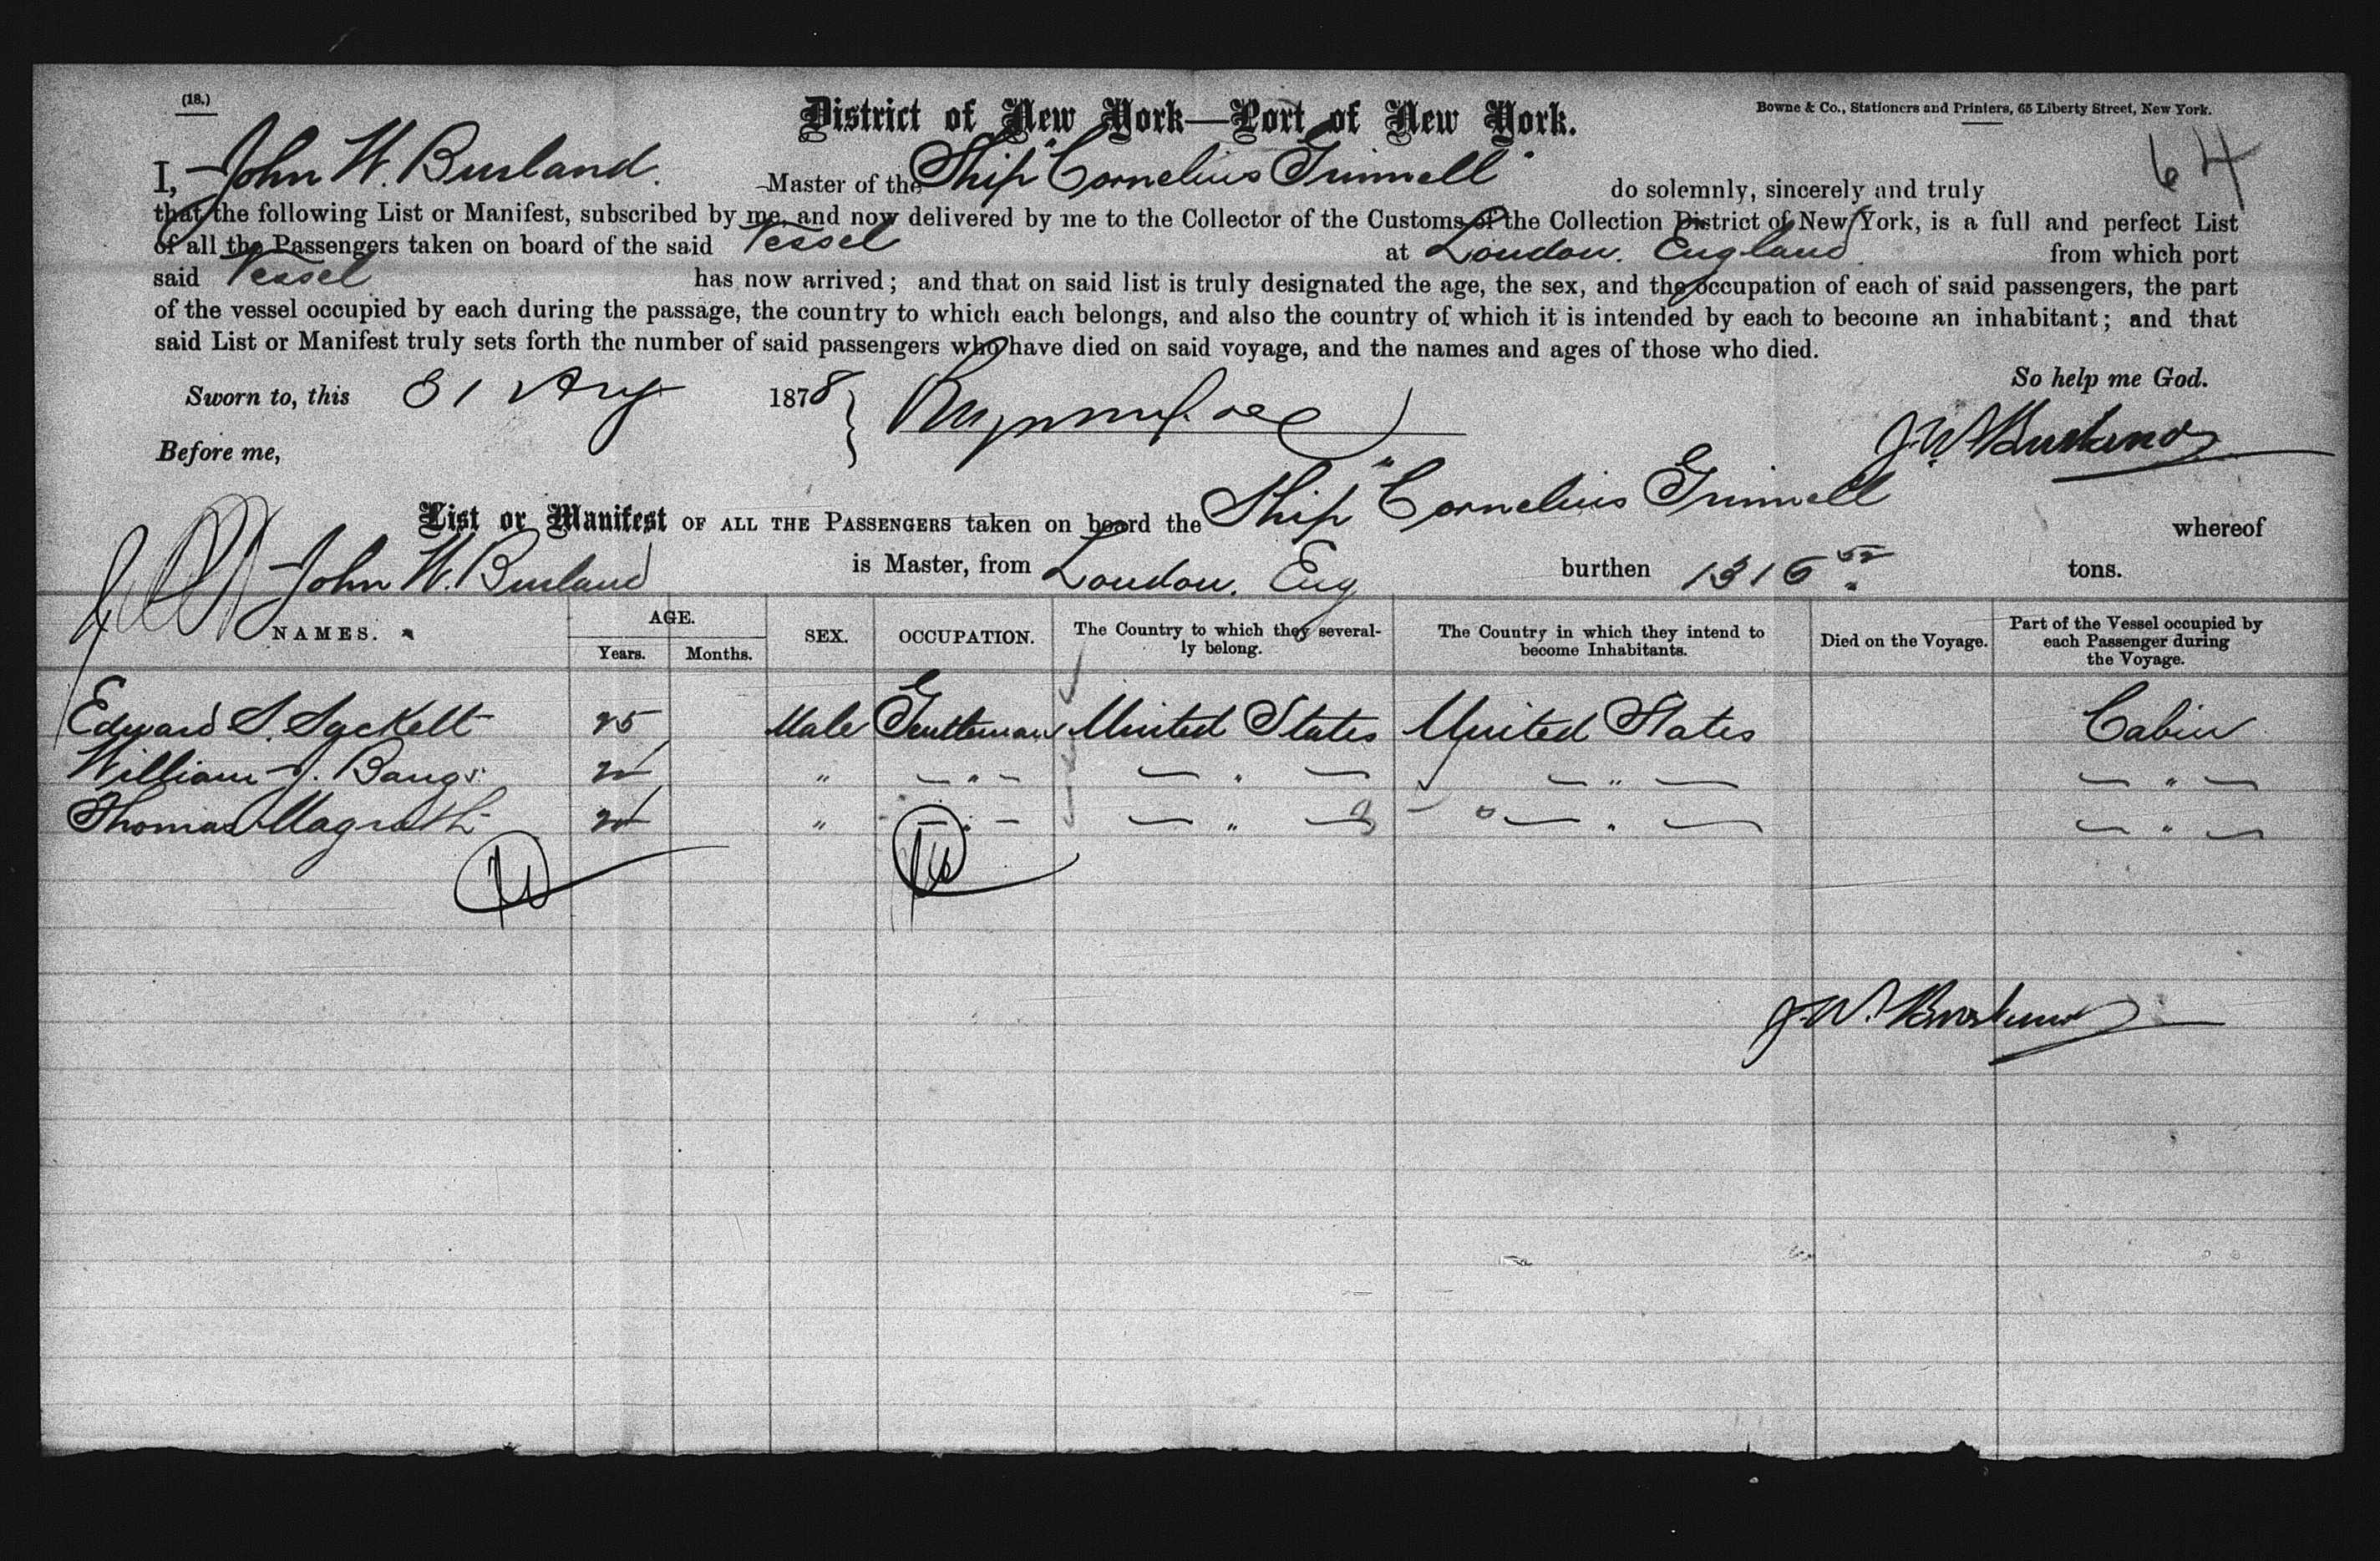 (18.)
District of New York—Port of New York.
Bowne & Co., Stationers and Printers, 65 Liberty Street, New York.
64
I, John W. Busland. Master of the Ship "Cornelius Grinnell" do solemnly, sincerely and truly
that the following List or Manifest, subscribed by me, and now delivered by me to the Collector of the Customs of the Collection District of New York, is a full and perfect List
of all the Passengers taken on board of the said Vessel at London. England. from which port
said Vessel has now arrived; and that on said list is truly designated the age, the sex, and the occupation of each of said passengers, the part
of the vessel occupied by each during the passage, the country to which each belongs, and also the country of which it is intended by each to become an inhabitant; and that
said List or Manifest truly sets forth the number of said passengers who have died on said voyage, and the names and ages of those who died.
So help me God.
Sworn to, this 31 Aug 1878
J. W. Busland
Before me,
List or Manifest OF ALL THE PASSENGERS taken on board the Ship "Cornelius Grinnell whereof
John W. Busland is Master, from London. Eng burthen 1316 52 tons.
NAMES. AGE. Years. Months. SEX. OCCUPATION. The Country to which they severally belong. The Country in which they intend to become Inhabitants. Died on the Voyage. Part of the Vessel occupied by each Passenger during the Voyage.
Edward S. Sackett 25 Male Gentleman United States United States Cabin
William J. Bangs " — " — — " — — " — — " —
Thomas Magrath " — " — — " — — " — — " —
J. W. Busland